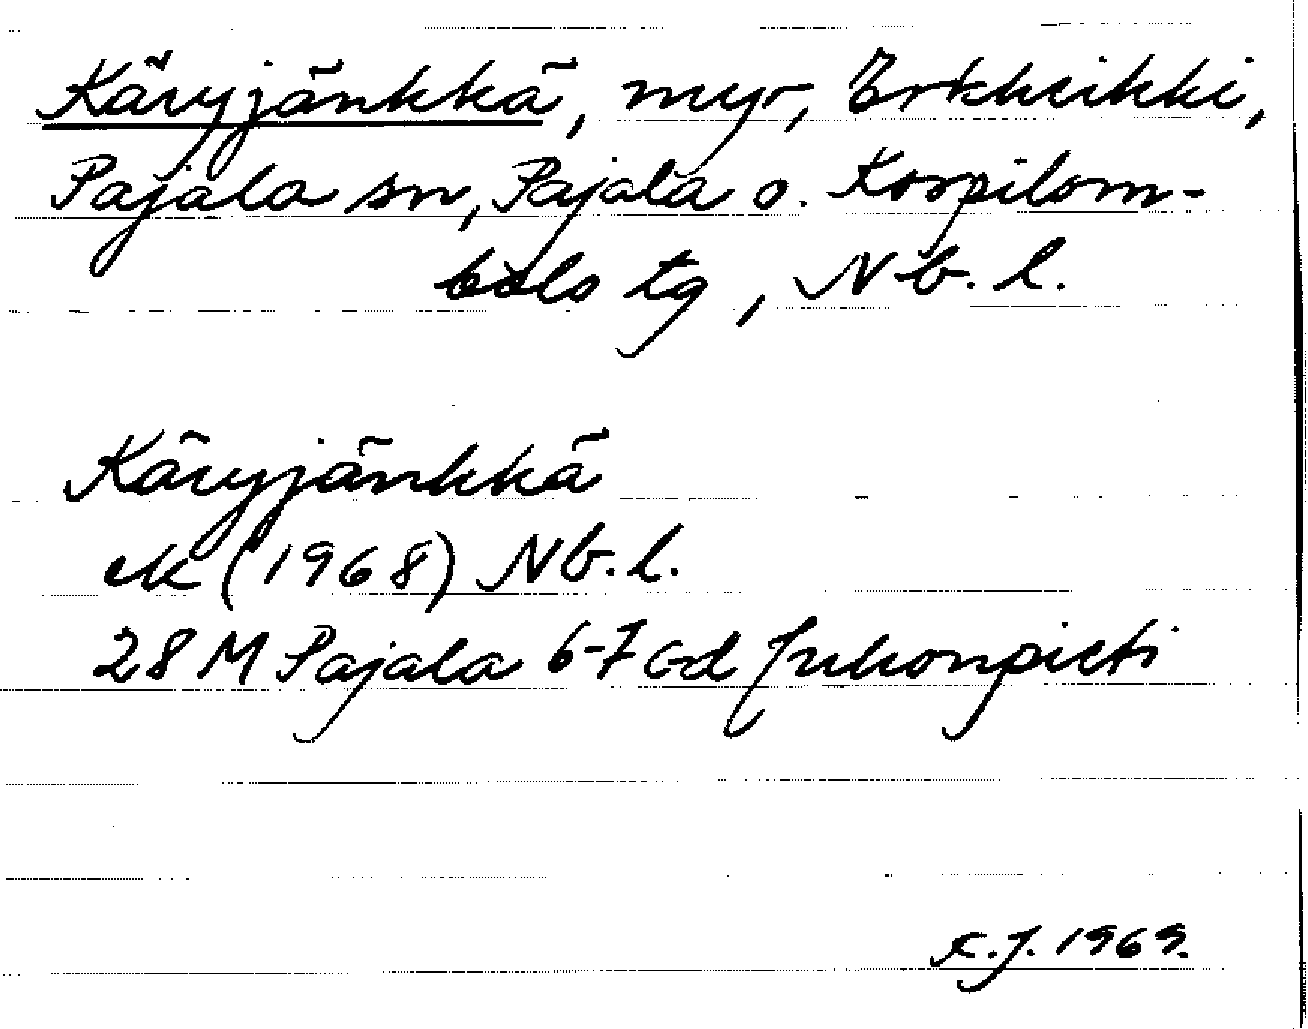 Kävyjänkkä, myr, Erkheikki,
Pajala sn, Pajala o. Korpilom-
bolo tg, Nb. l.
Kävyjänkkä
ek (1968) Nb. l.
28 M Pajala 6-7 cd Juhonpieti
K.J. 1969.